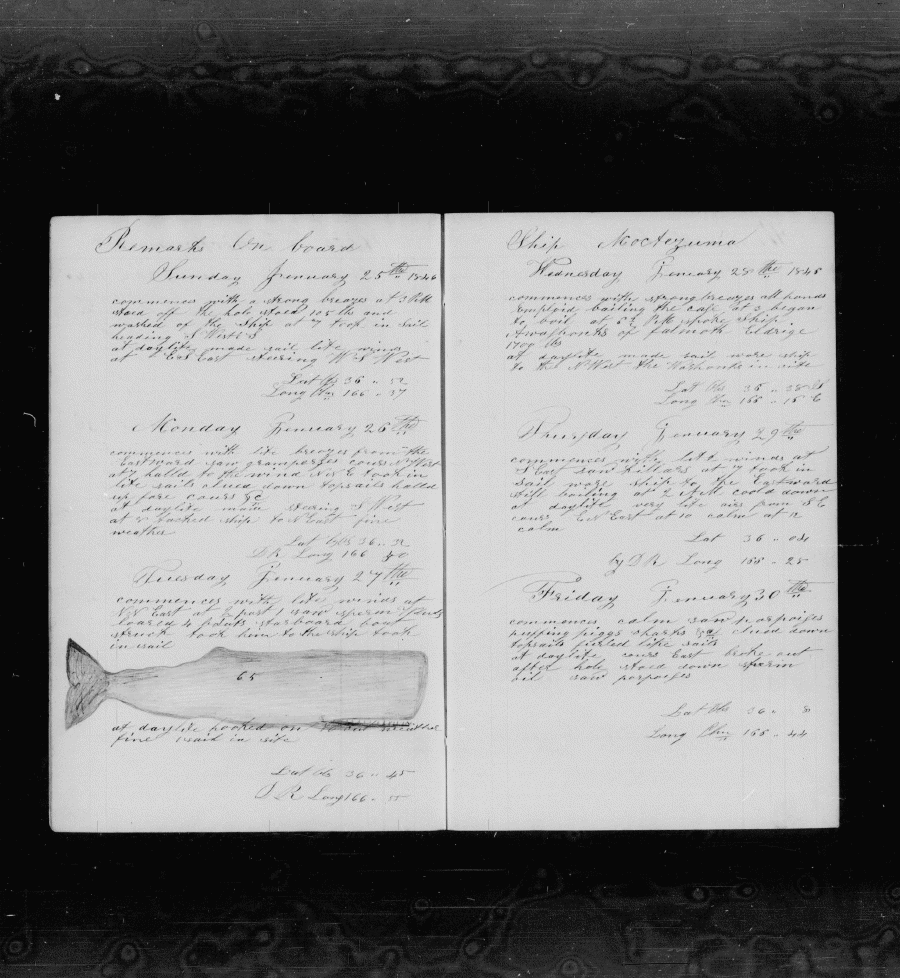 Remarks On board
Sunday Jenuary 25th 1846
commences with a strong breazes at 3 PM
stoed off the hole stoed 105 lb and
washed of the ship at 7 took in sail
heading S West S
at daylite made sail lite winds
at East steering W S West
Lat Obs 36 " 52
Long Chr 166 " 37
Monday Jenuary 26th
commences with lite breazes from the
Eastward saw gramperses cours N West
at 7 halld to the wind N N E took in
lite sails clued down topsails halld
up fore cours &c
at daylite made steering S West
at 8 tacked ship to N East fine
weather
Lat Obs 36 " 32
D R Long 166 " 40
Tuesday Jenuary 27th
commences with lite winds at
N N East at 2 past 1 saw sperm
loared 4 boats starboard boat
struck took him to the ship took
in sail
65
at daylite hooked on weather
fine 1 said in site
Lat Obs 36 " 45
D R Long 166 "
Ship Moctezuma
Wednesday Jenuary 28th 1846
commences with strong breazes all hands
Emploid boiling the case at 3 began
to boil at PM spoke ship
Awashonks of falmoth Eldrige
1700 lbs
at daylite made sail wore ship
to the N West the Washonks in site
Lat Obs 36 " 38 S
Long Chr 166 " 15 E
Thursday Jenuary 29th
commences with lite winds at
S East saw killars at 7 took in
sail wore ship to the Eastward
still boiling at 2 AM coold down
at daylite very lite airs from S E
cours E N East at 10 calm at 12
calm
Lat 36 " 04
by D R Long 166 " 25
Friday Jenuary 30th
commences calm saw porpoises
puffing piggs sharks &c clued down
topsails furled lite sails
at daylite cours East broke out
after hole stoed down sperm
oil saw porpoises
Lat Obs 36 " 8
Long Chr 166 " 44